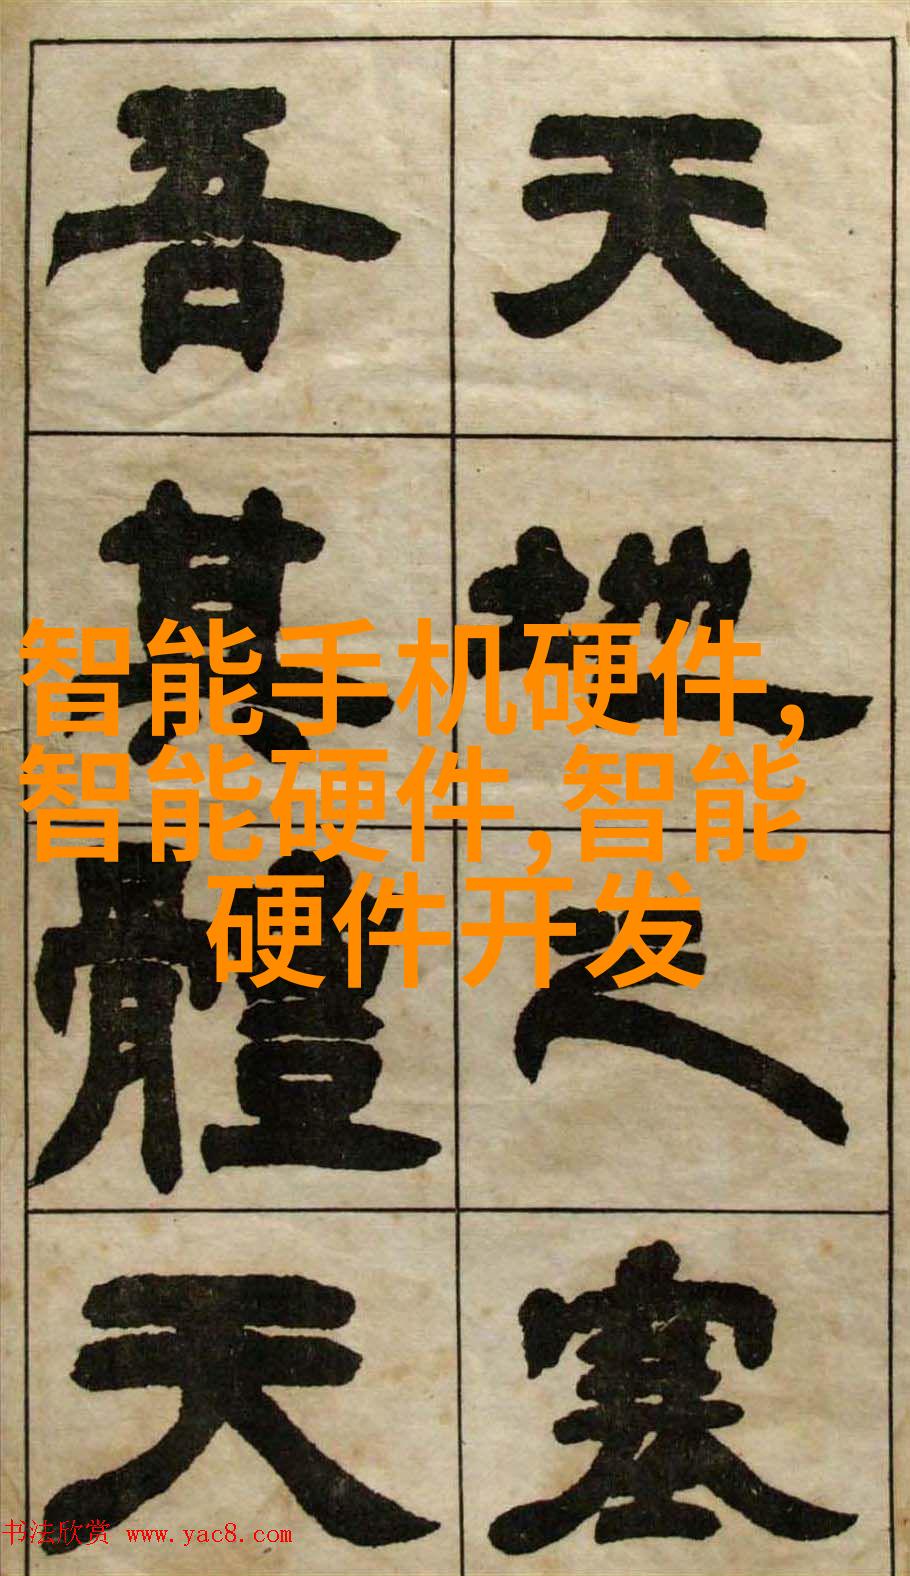 天地之塞
吾其體天
智能手机硬件,
智能硬件,智能
硬件开发
书法欣赏 www.yac8.com